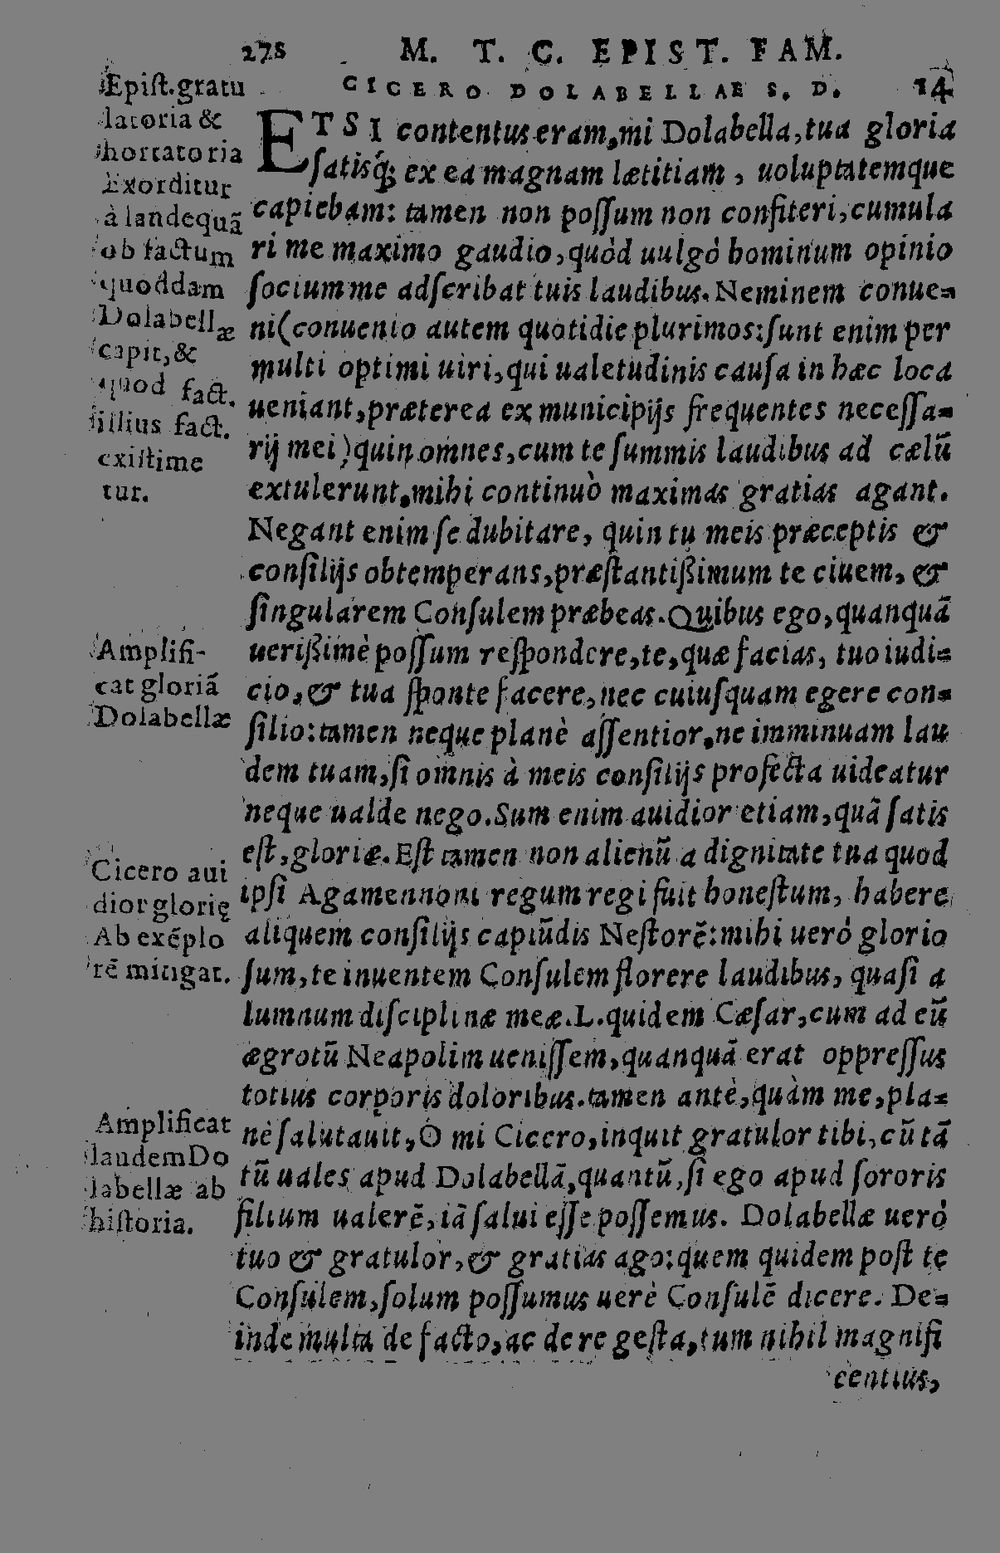 278 M. T. C. EPIST. FAM.
CICERO DOLABELLAE S. D. 14
ETSI contentus eram, mi Dolabella, tua gloria
ſatisq́; ex ea magnam lætitiam, uoluptatemque
capiebam: tamen non poſſum non confiteri, cumula
ri me maximo gaudio, quòd uulgò hominum opinio
ſocium me adſcribat tuis laudibus. Neminem conue-
ni (conuenio autem quotidie plurimos: ſunt enim per
multi optimi uiri, qui ualetudinis cauſa in hæc loca
ueniant, præterea ex municipijs frequentes neceſſa-
rij mei) quin omnes, cum te ſummis laudibus ad cælũ
extulerunt, mihi continuò maximas gratias agant.
Negant enim ſe dubitare, quin tu meis præceptis &
conſilijs obtemperans, præſtantißimum te ciuem, &
ſingularem Conſulem præbeas. Quibus ego, quanquã
uerißimè poſſum reſpondere, te, quæ facias, tuo iudi-
cio, & tua ſponte facere, nec cuiuſquam egere con-
ſilio: tamen neque planè aſſentior, ne imminuam lau
dem tuam, ſi omnis à meis conſilijs profecta uideatur
neque ualde nego. Sum enim auidior etiam, quã ſatis
eſt, gloriæ. Eſt tamen non alienũ a dignitate tua quod
ipſi Agamennoni regum regi fuit honeſtum, habere
aliquem conſilijs capiũdis Neſtorẽ: mihi uerò glorio
ſum, te iuuentem Conſulem florere laudibus, quaſi a
lumnum diſciplinæ meæ. L. quidem Cæſar, cum ad eũ
ægrotũ Neapolim ueniſſem, quanquã erat oppreſſus
totius corporis doloribus. tamen antè, quàm me, pla-
nè ſalutauit, O mi Cicero, inquit gratulor tibi, cũ tã
tũ uales apud Dolabellã, quantũ, ſi ego apud ſororis
filium ualerẽ, iã ſalui eſſe poſſemus. Dolabellæ uerò
tuo & gratulor, & gratias ago: quem quidem poſt te
Conſulem, ſolum poſſumus uerè Conſulẽ dicere. De-
inde multa de facto, ac de re geſta, tum nihil magnifi
centius,
Epiſt. gratu
latoria &
hortatoria
Exorditur
à laudequã
ob factum
quoddam
Dolabellæ
capit, &
quod fact.
illius fact.
exiſtime
tur.
Amplifi-
cat gloriã
Dolabellæ
Cicero aui
dior glorię
Ab exẽplo
rẽ mitigat.
Amplificat
laudem Do
labellæ ab
hiſtoria.